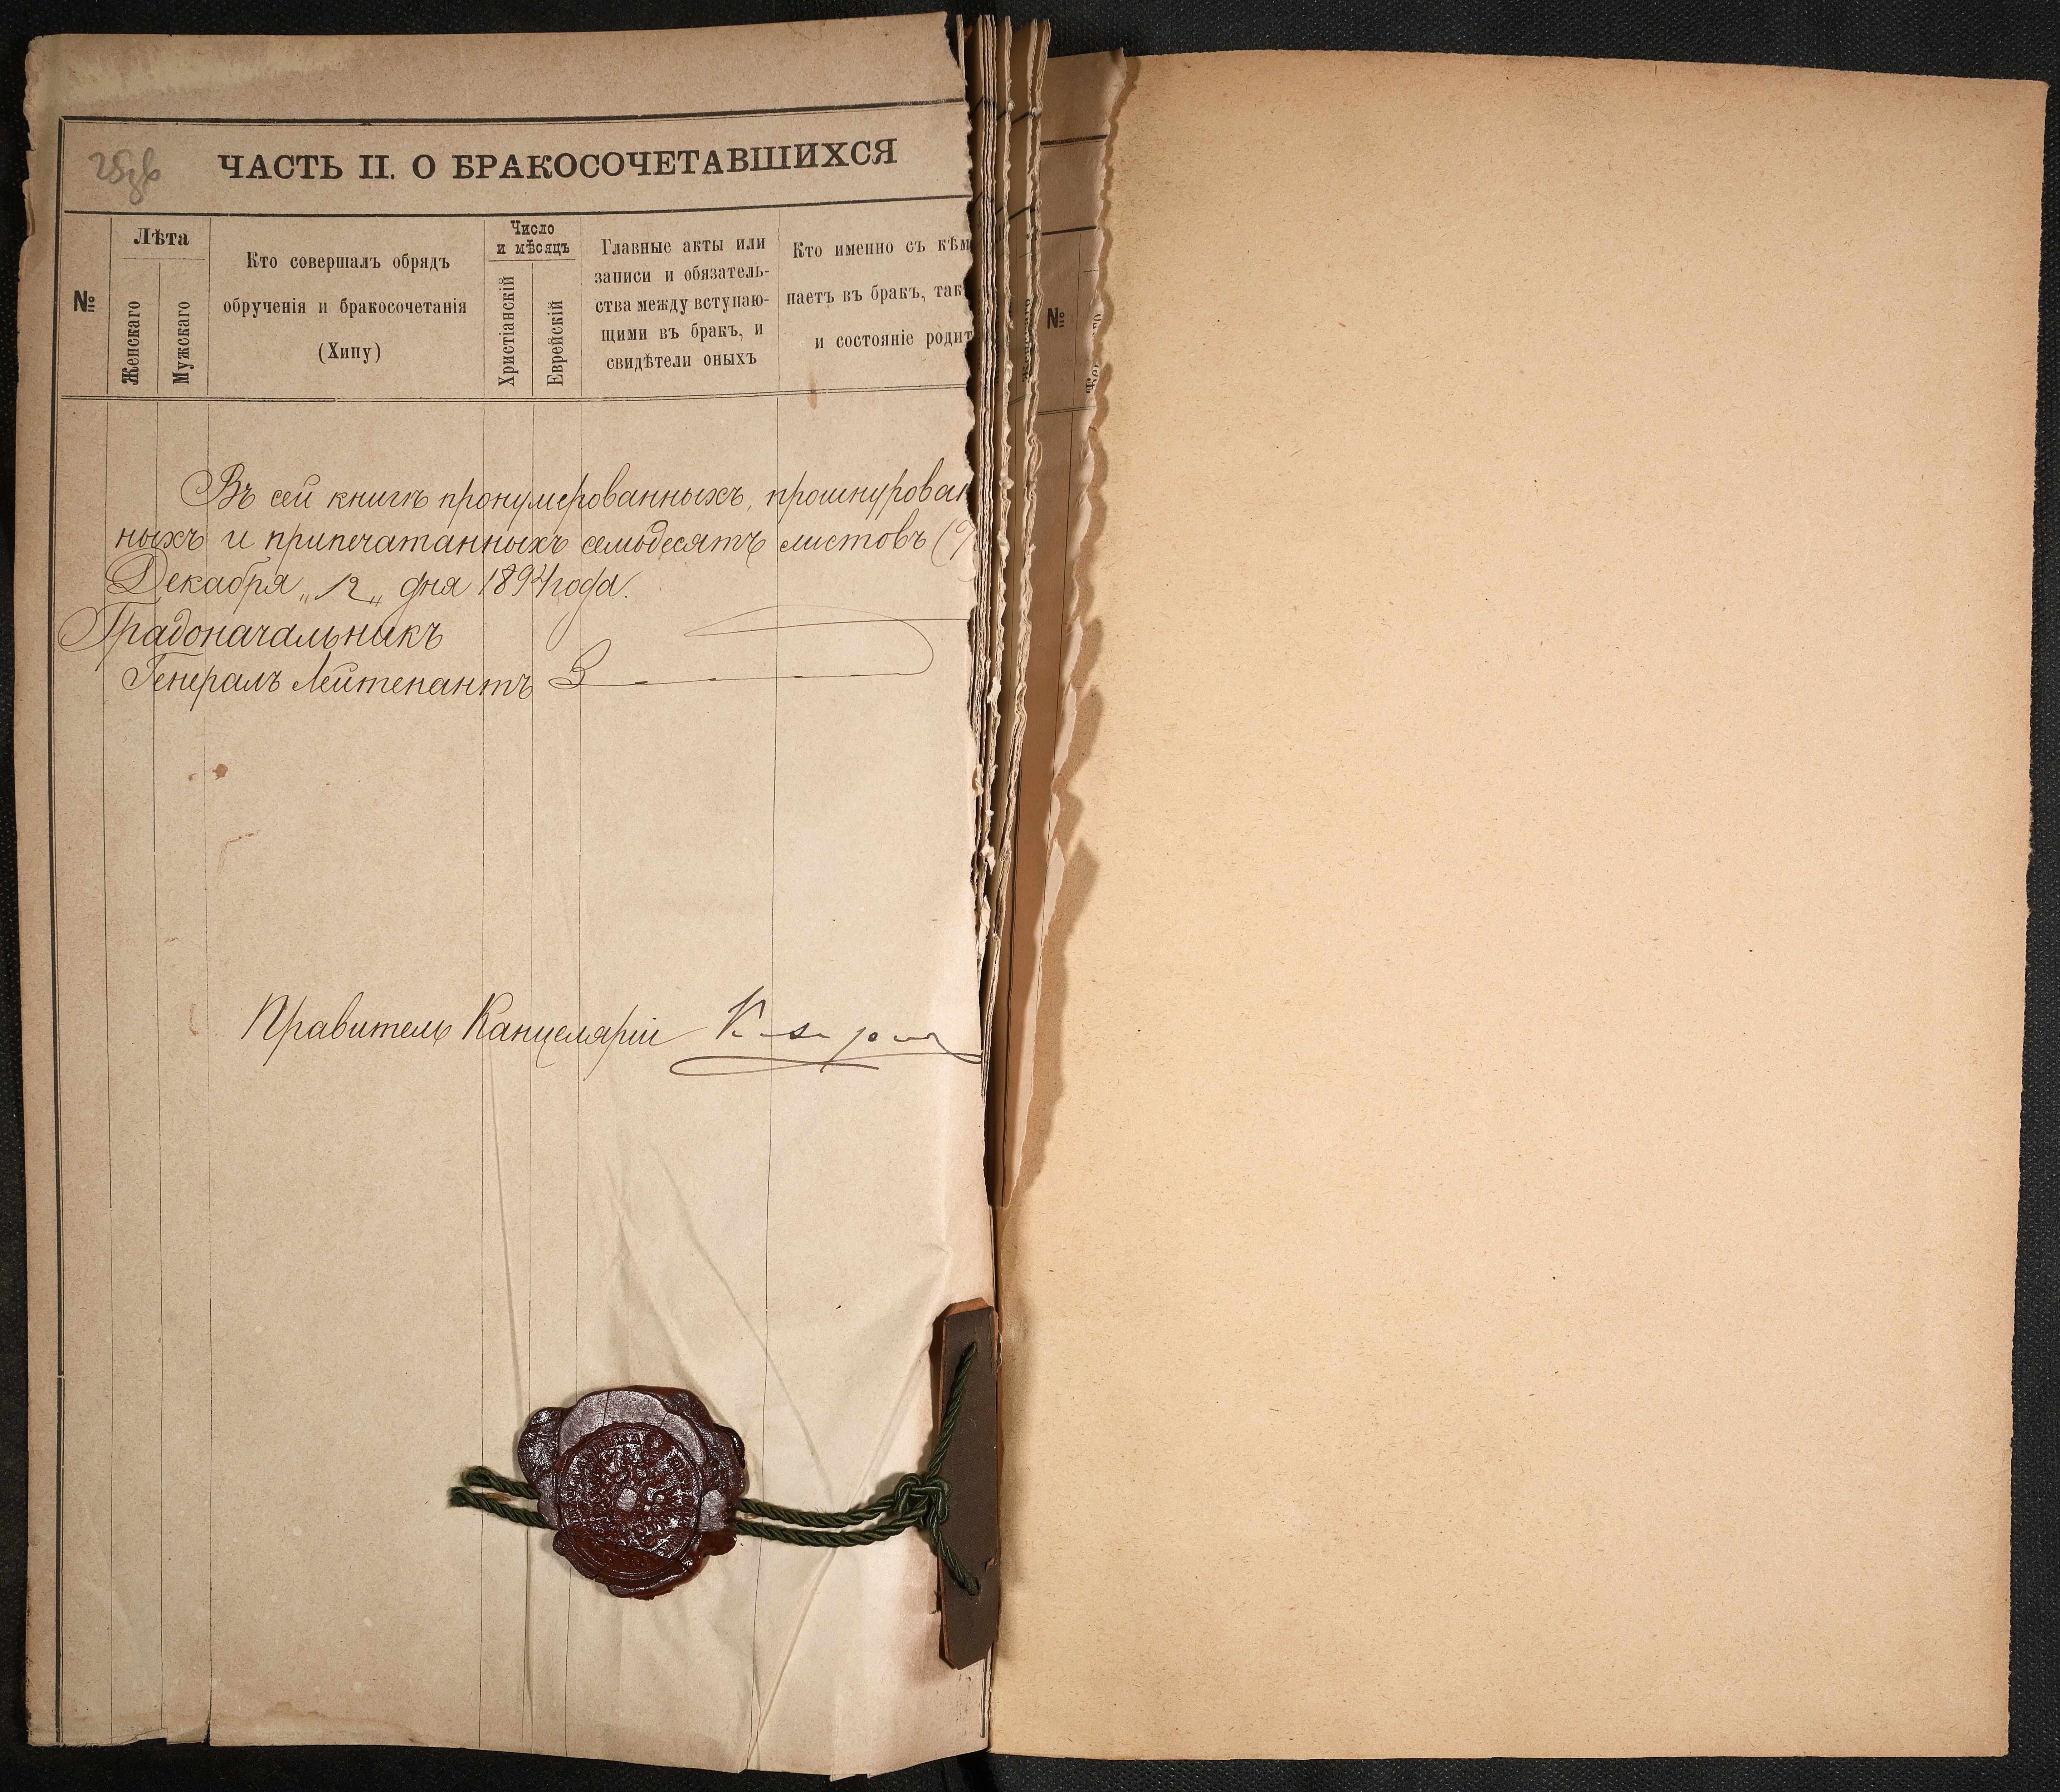 ЧАСТЬ II. О БРАКОСОЧЕТАВШИХСЯ
№
Лѣта
Женскаго
Мужскаго
Кто совершалъ обрядъ
обрученія и бракосочетанія
(Хипу)
Число
и мѣсяцъ
Христіанскій
Еврейскій
Главные акты или
записи и обязатель-
ства между вступаю-
щими въ бракъ, и
свидѣтели оныхъ
Кто именно съ кѣм
паетъ въ бракъ, так
и состояніе родит
№
Въ сей книгѣ пронумерованныхъ, прошнурован
ныхъ и припечатанныхъ семьдесятъ листовъ
Декабря „12„ дня 1894 года.
Градоначальникъ
Генералъ Лейтенантъ
Правитель Канцеляріи